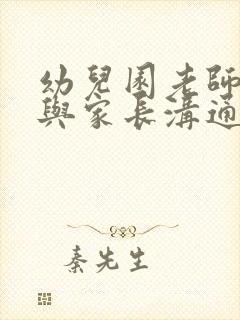 幼兒園老師
與家長溝通
秦先生